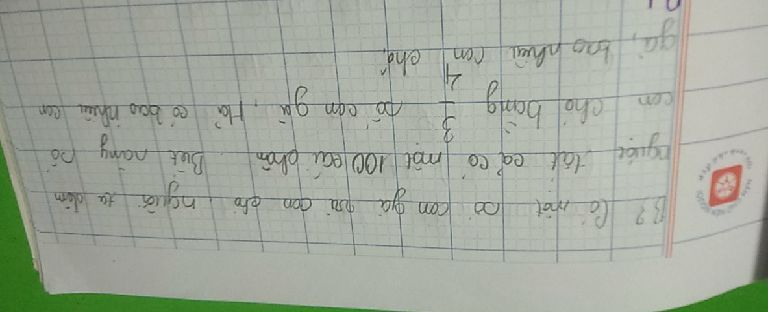 B3 Có một số con gà và con chó, người ta đếm
người tất cả có một 100 cái chân. Biết rằng số
con chó bằng 3/4 số con gà. Hỏi có bao nhiêu con
gà, bao nhiêu con chó.